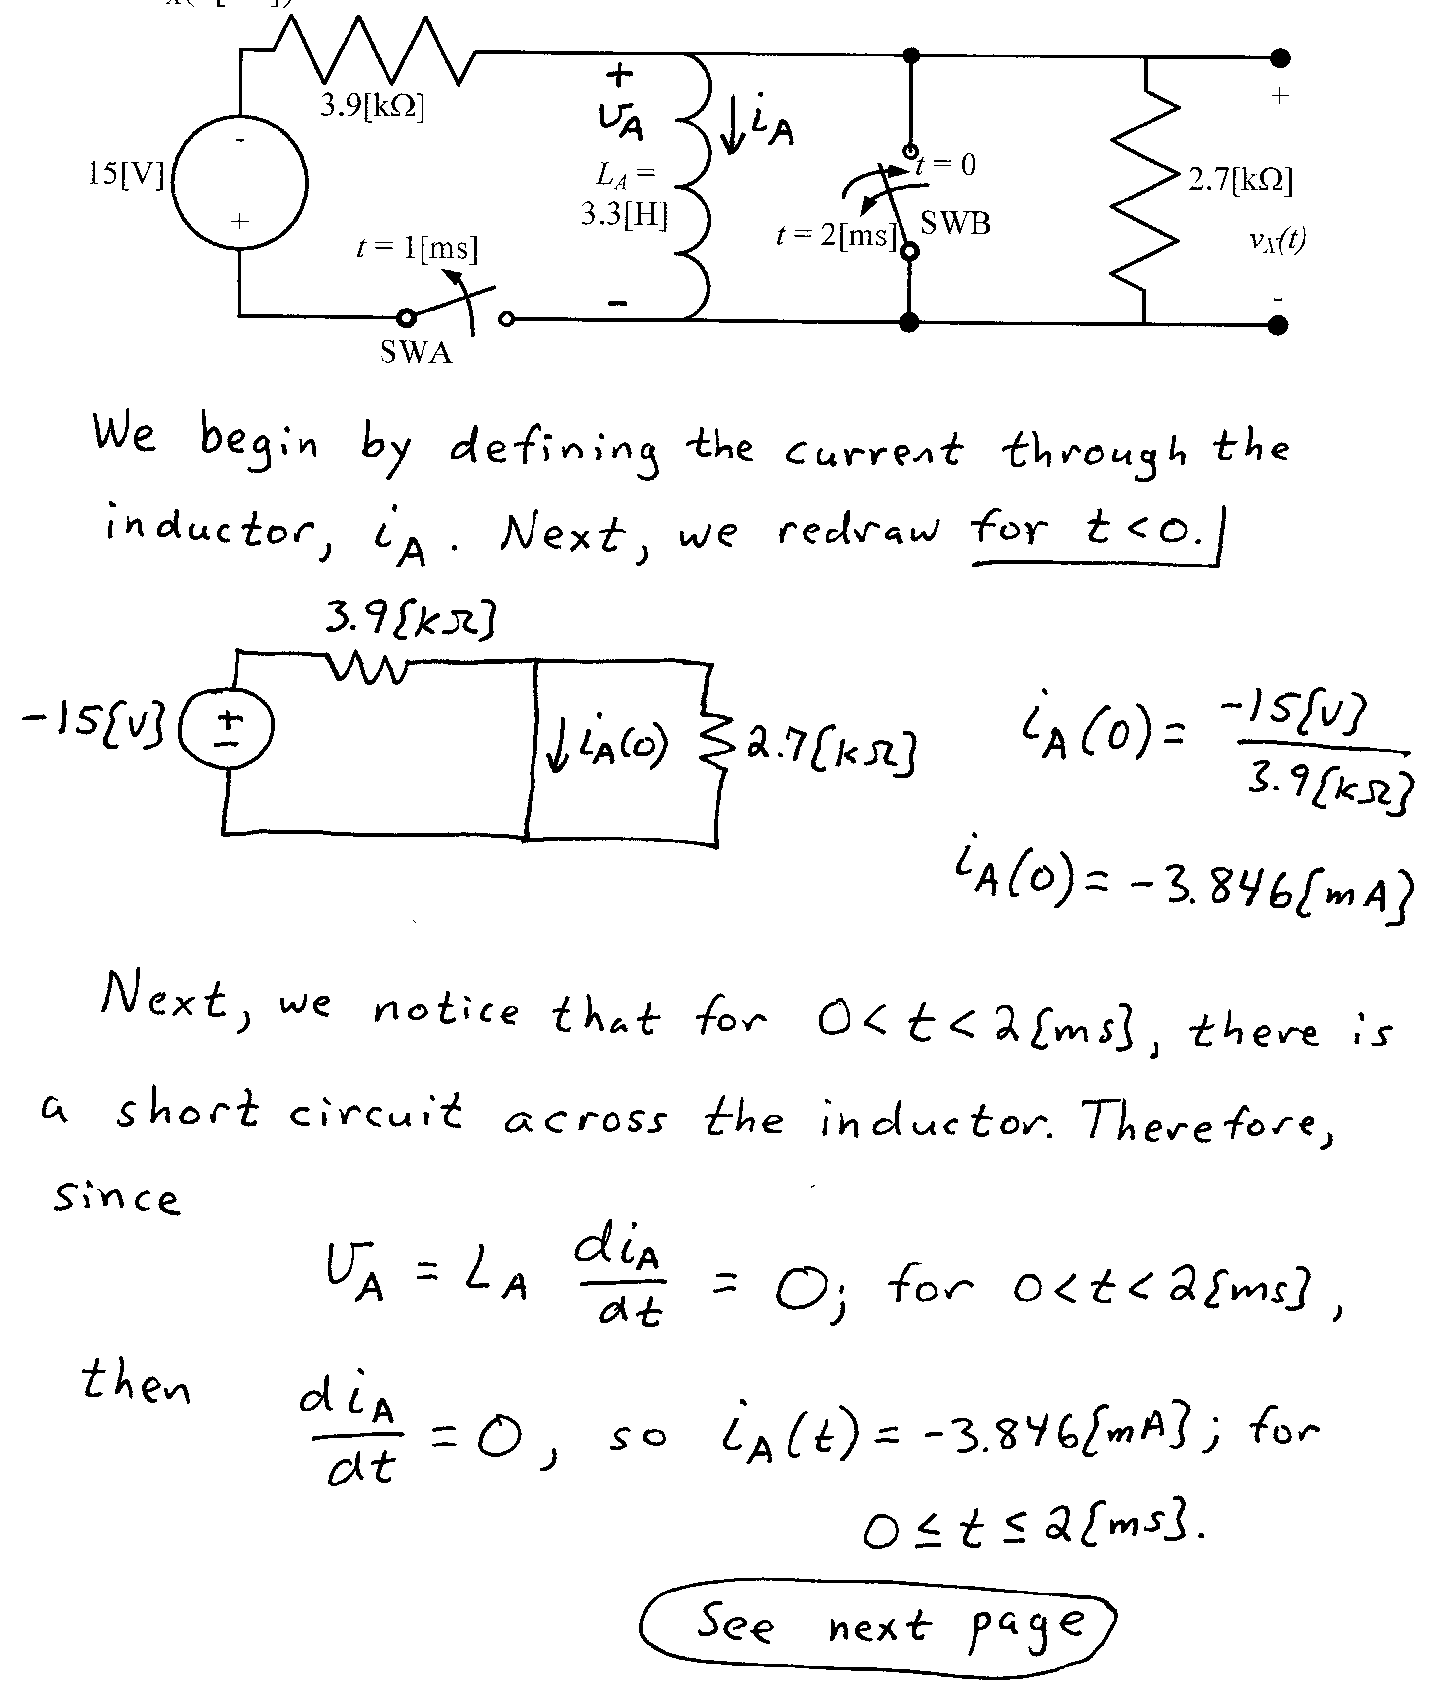 3.9[kΩ]
+
v_A
i_A
+
-
15[V]
+
L_A =
3.3[H]
t = 0
2.7[kΩ]
t = 1[ms]
t = 2[ms]
SWB
v_X(t)
-
-
SWA
We begin by defining the current through the
inductor, i_A. Next, we redraw for t<0.
3.9[kΩ]
-15[V]
+
-
i_A(0)
2.7[kΩ]
i_A(0) = -15[V] / 3.9[kΩ]
i_A(0) = -3.846[mA]
Next, we notice that for 0<t<2[ms], there is
a short circuit across the inductor. Therefore,
since
v_A = L_A di_A/dt = 0; for 0<t<2[ms],
then di_A/dt = 0, so i_A(t) = -3.846[mA]; for
0≤t≤2[ms].
See next page